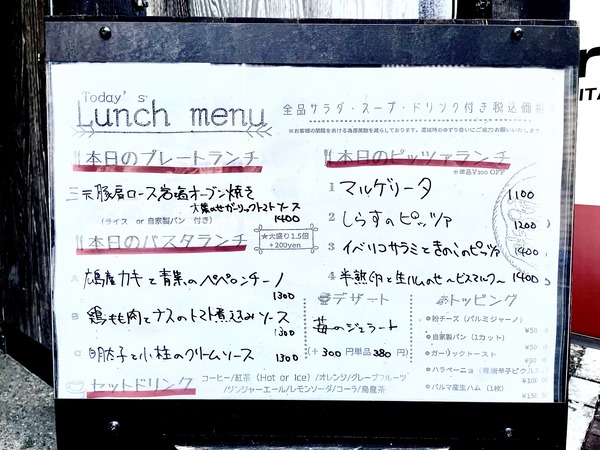 Today's
Lunch menu
全品サラダ・スープ・ドリンク付き税込価格
※お客様の間隔をあける為座席数を減らしております。混雑時のゆずり合いにご協力お願いいたします
本日のプレートランチ
三元豚肩ロース岩塩オーブン焼き
大葉のせガーリックトマトソース
(ライス or 自家製パン 付き)
1400
本日のパスタランチ
★大盛り1.5倍
+200yen
A 広島産カキと青菜のペペロンチーノ
1300
B 鶏もも肉とナスのトマト煮込みソース
1300
C 明太子と小柱のクリームソース
1300
セットドリンク
コーヒー/紅茶 (Hot or Ice) /オレンジ/グレープフルーツ
/ジンジャーエール/レモンソーダ/コーラ/烏龍茶
本日のピッツァランチ
★単品¥200 OFF
1 マルゲリータ 1100
2 しらすのピッツァ 1200
3 イベリコサラミときのこのピッツァ 1400
4 半熟卵と生ハムのせ〜ビスマルク〜 1400
デザート
苺のジェラート
(+300円単品380円)
トッピング
粉チーズ (パルミジャーノ)
¥50
自家製パン (1カット)
¥50
ガーリックトースト
¥50
ハラペーニョ (青唐辛子ピクルス
¥100
パルマ産生ハム (1枚)
¥150
ITA